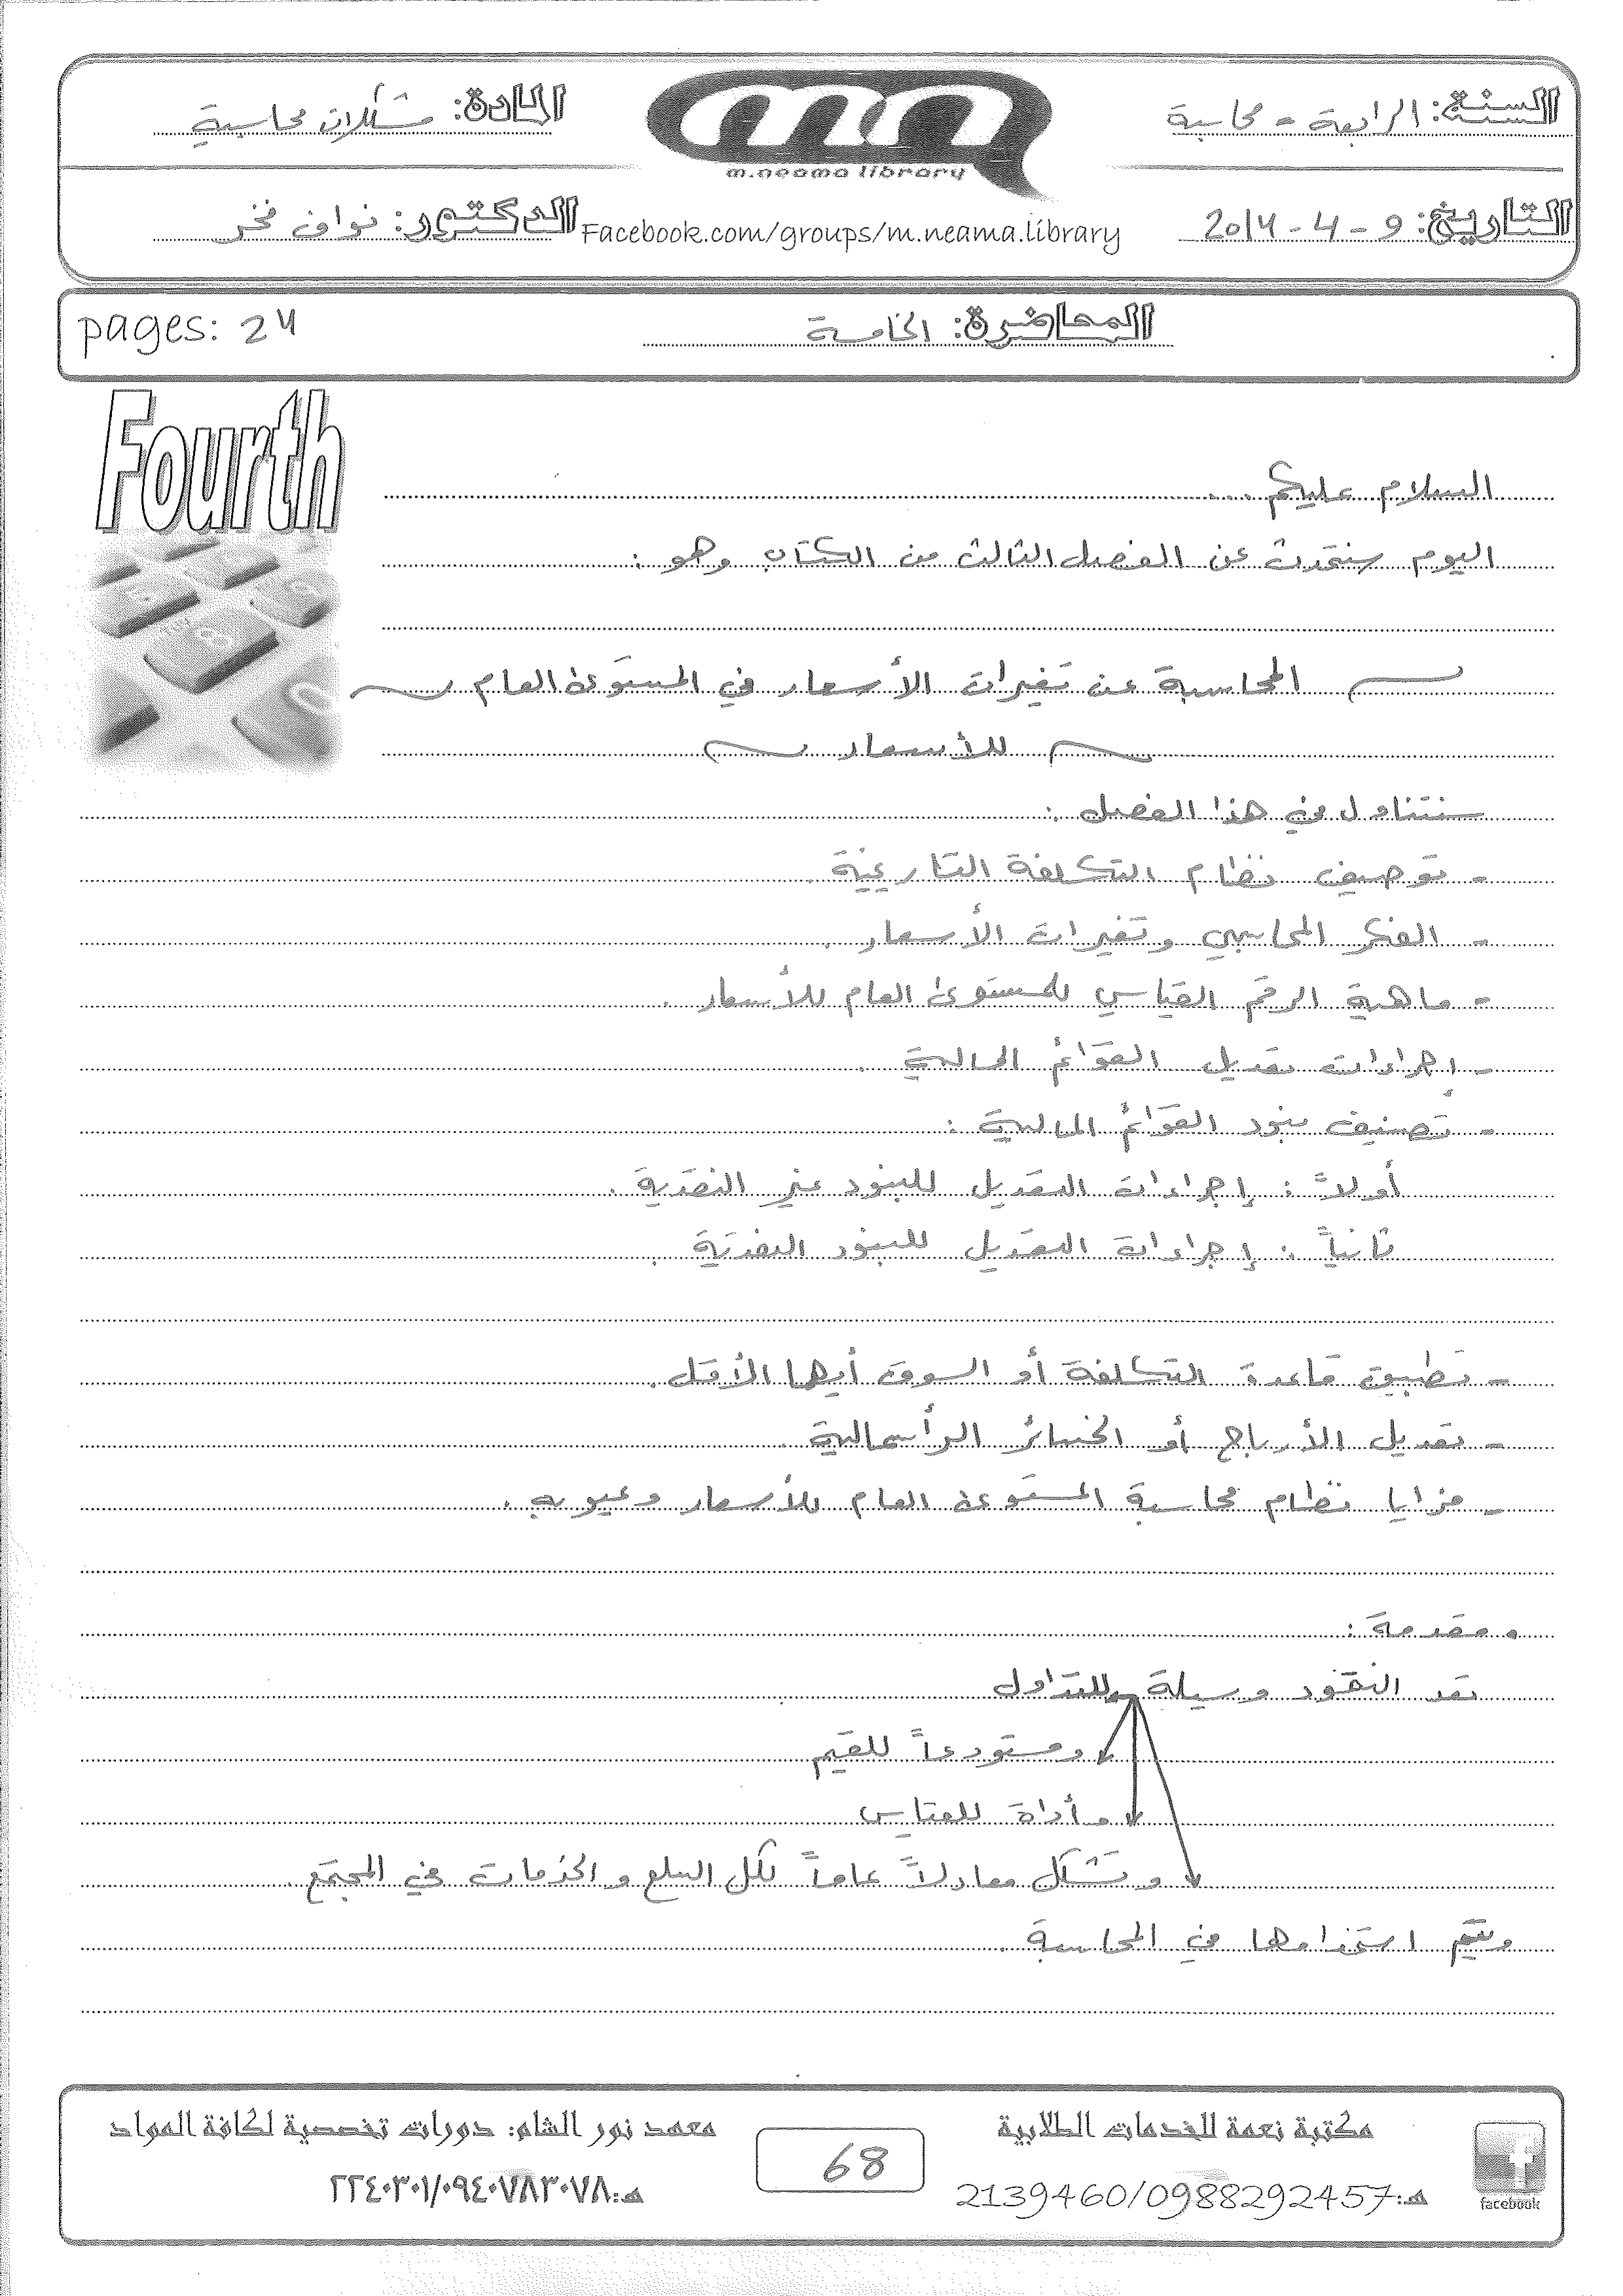 السنة: الرابعة - محاسبة
المادة: مشكلات محاسبية
m.neama library
التاريخ: 9 - 4 - 2014
Facebook.com/groups/m.neama.library
الدكتور: نواف فخر
المحاضرة: الخامسة
pages: 24
Fourth
السلام عليكم ...
اليوم سنتحدث عن الفصل الثالث من الكتاب وهو :
المحاسبة عن تغيرات الأسعار في المستوى العام
للأسعار
سنتناول في هذا الفصل :
- توصيف نظام التكلفة التاريخية .
- الفكر المحاسبي وتغيرات الأسعار .
- ماهية الرقم القياسي للمستوى العام للأسعار .
- إجراءات تعديل القوائم المالية .
- تصنيف بنود القوائم المالية :
أولاً : إجراءات التعديل للبنود غير النقدية .
ثانياً : إجراءات التعديل للبنود النقدية .
- تطبيق قاعدة التكلفة أو السوق أيها الأقل .
- تعديل الأرباح أو الخسائر الرأسمالية .
- مزايا نظام محاسبة المستوى العام للأسعار وعيوبه .
• مقدمة :
تعد النقود وسيلة للتداول
ومستودعاً للقيم
وأداة للقياس
وتشكل معادلاً عاماً لكل السلع والخدمات في المجتمع .
ويتم استخدامها في المحاسبة .
مكتبة نعمة للخدمات الطلابية
هـ: 2139460/0988292457
facebook
68
معهد نور الشام: دورات تخصصية لكافة المواد
هـ: ٢٢٤٠٣٠١/٠٩٤٠٧٨٣٠٧٨